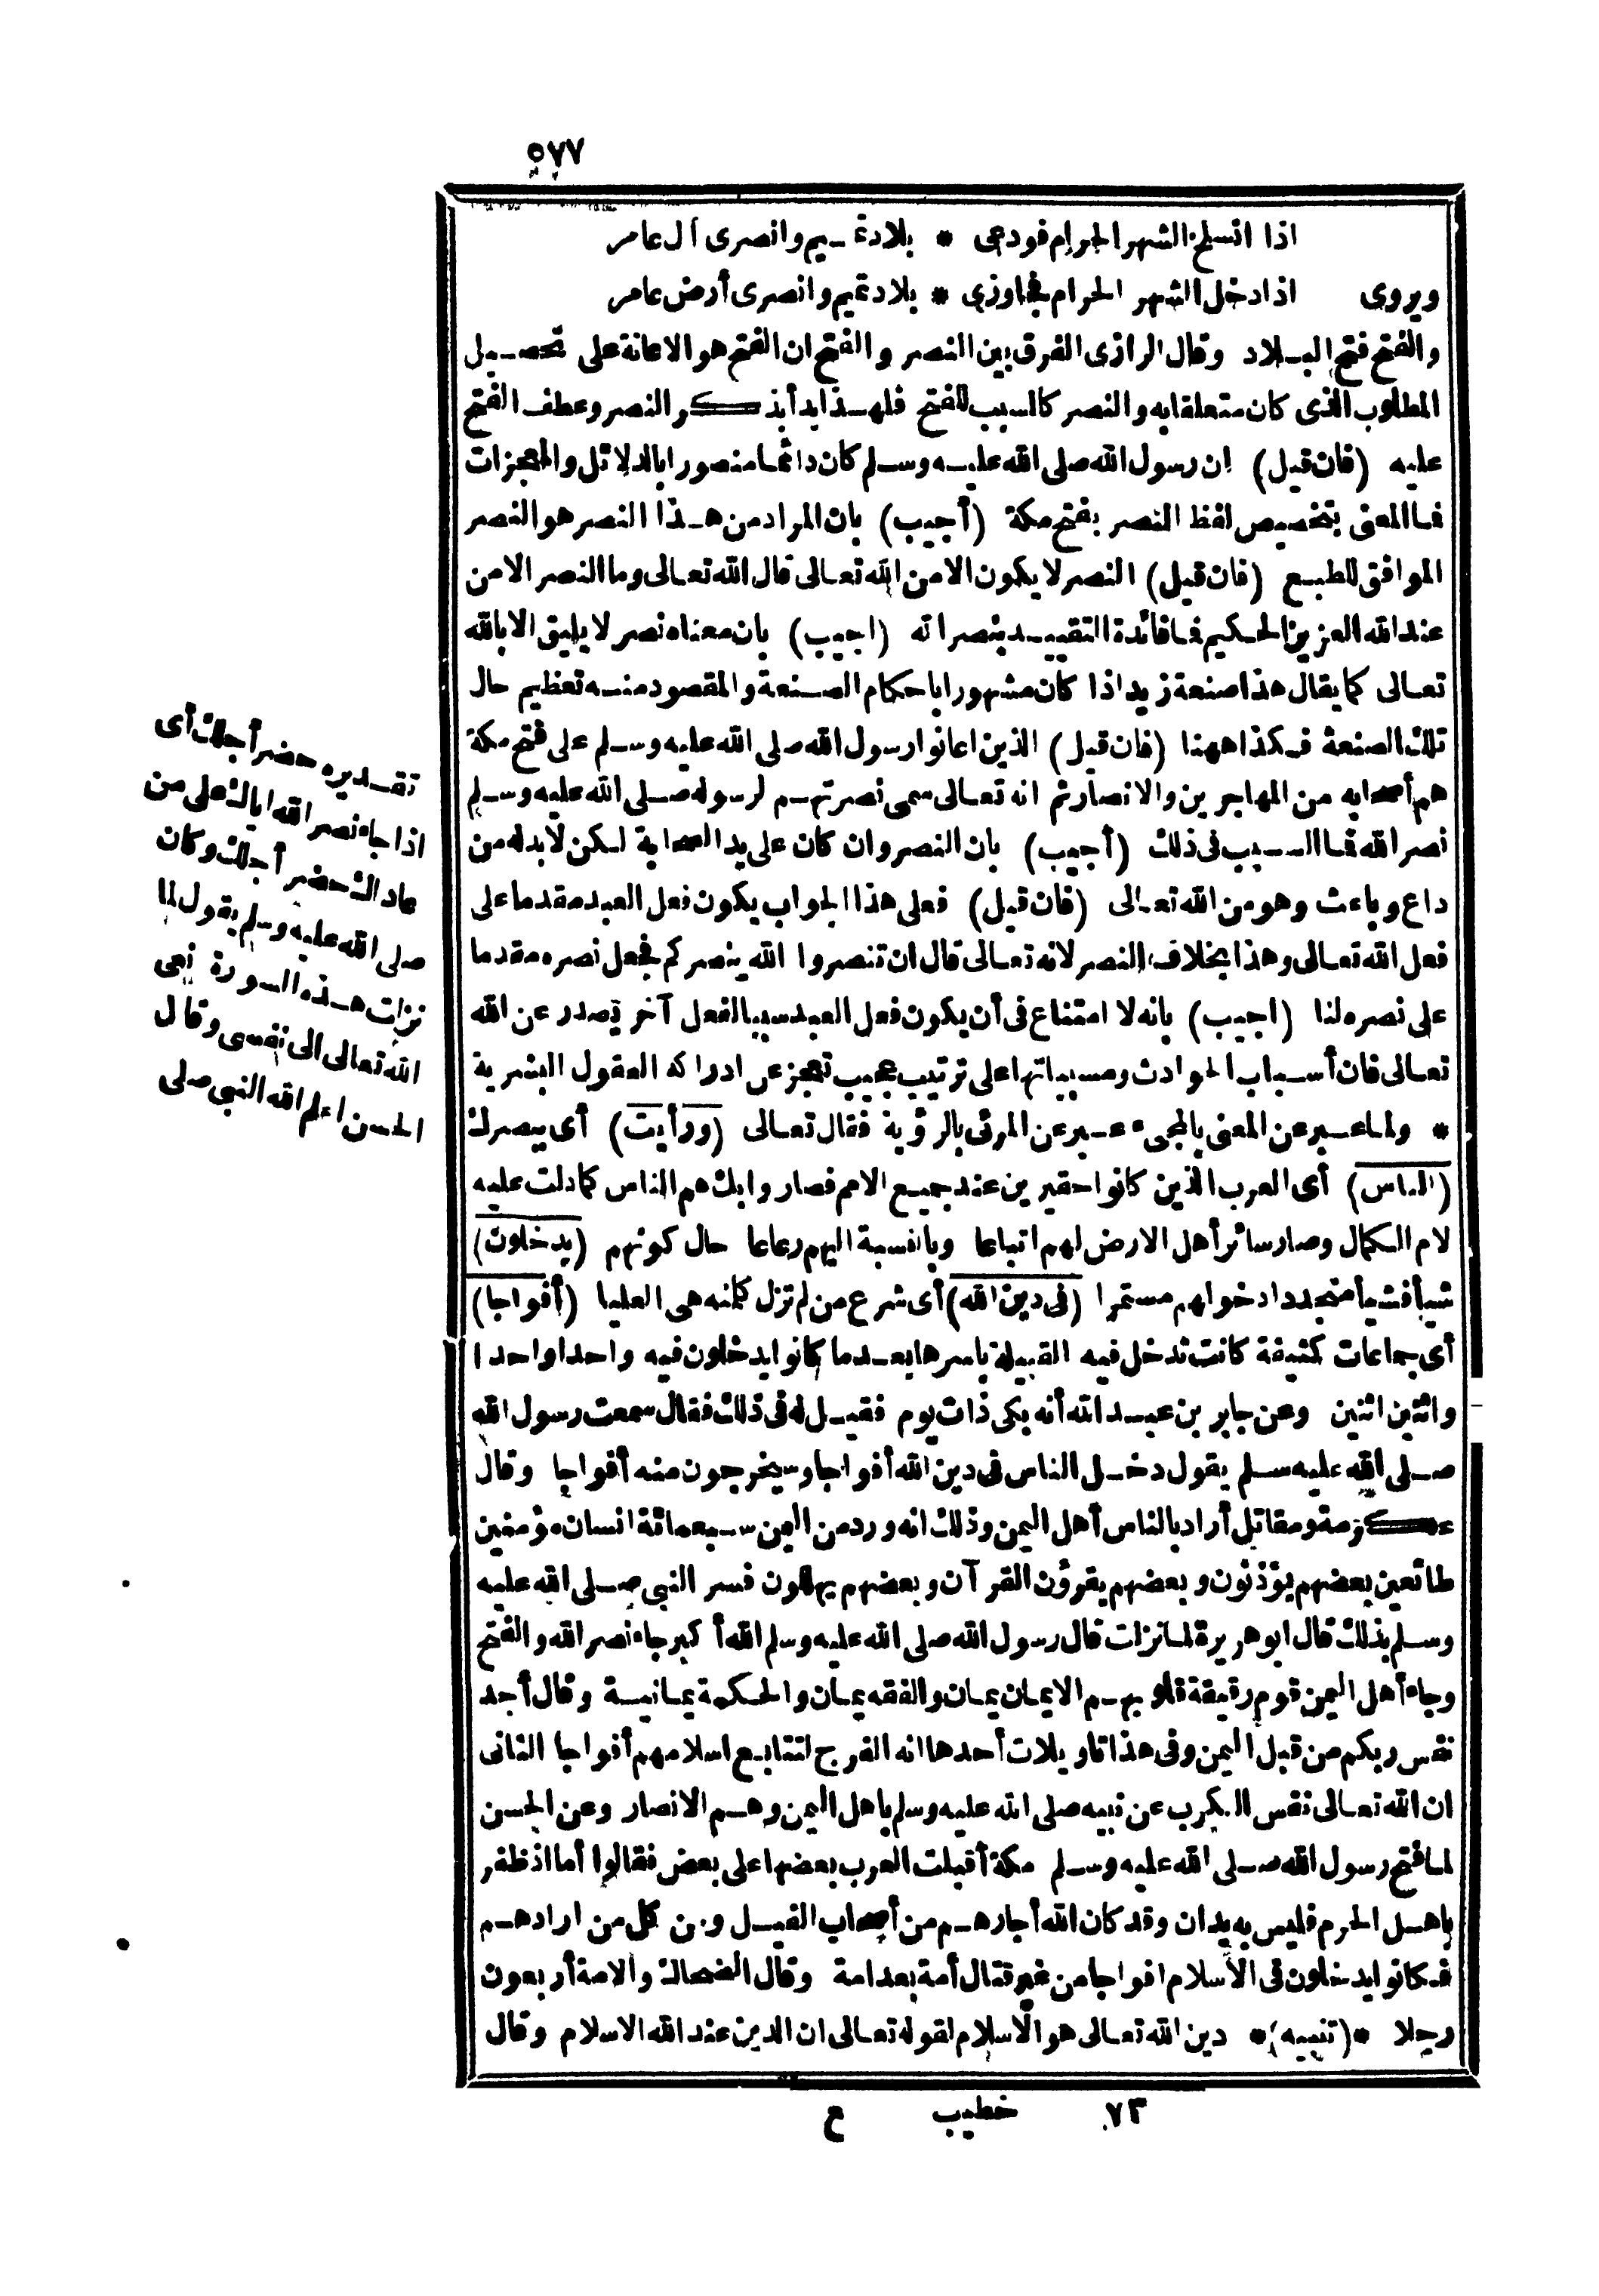 ٥٧٧
اذا انسلخ الشهر الحرام فودعى * بلاد تميم وانصرى آل عامر
ويروى اذا دخل الشهر الحرام فجاوزى * بلاد تميم وانصرى أرض عامر
والفتح فتح البلاد وقال الرازى الفرق بين النصر والفتح ان الفتح هو الاعانة على تحصيل
المطلوب الذى كان متعلقا به والنصر كالسبب للفتح فلهذا بدأ بذكر النصر وعطف الفتح
عليه (فان قيل) ان رسول الله صلى الله عليه وسلم كان دائما منصورا بالدلائل والمعجزات
فما المعنى بتخصيص لفظ النصر بفتح مكة (أجيب) بان المراد من هذا النصر هو النصر
الموافق للطبع (فان قيل) النصر لا يكون الا من الله تعالى قال الله تعالى وما النصر الا من
عند الله العزيز الحكيم فما فائدة التقييد بنصر الله (اجيب) بان معناه نصر لا يليق الا بالله
تعالى كما يقال هذا صنعة زيد اذا كان مشهورا باحكام الصنعة والمقصود منه تعظيم حال
تلك الصنعة فكذا ههنا (فان قيل) الذين اعانوا رسول الله صلى الله عليه وسلم على فتح مكة
هم أصحابه من المهاجرين والانصار ثم انه تعالى سمى نصرتهم لرسوله صلى الله عليه وسلم
نصر الله فما السبب فى ذلك (أجيب) بان النصر وان كان على يد الصحابة لكن لا بد له من
داع وباعث وهو من الله تعالى (فان قيل) فعلى هذا الجواب يكون فعل العبد مقدما على
فعل الله تعالى وهذا بخلاف النصر لانه تعالى قال ان تنصروا الله ينصركم فجعل نصره مقدما
على نصره لنا (اجيب) بانه لا امتناع فى أن يكون فعل العبد سببا لفعل آخر يصدر عن الله
تعالى فان أسباب الحوادث ومسبباتها على ترتيب عجيب تعجز عن ادراكه العقول البشرية
* ولما عبر عن المعنى بالمجىء عبر عن المرئى بالرؤية فقال تعالى (ورأيت) أى ببصرك
(الناس) أى العرب الذين كانوا حقيرين عند جميع الامم فصاروا بك هم الناس كما دلت عليه
لام الكمال وصار سائر أهل الارض لهم اتباعا وبالنسبة اليهم رعاعا حال كونهم (يدخلون)
شيأ فشيأ متجددا دخولهم مستمرا (فى دين الله) أى شرع من لم تزل كلمته هى العليا (أفواجا)
أى جماعات كثيفة كانت تدخل فيه القبيلة باسرها بعدما كانوا يدخلون فيه واحدا واحدا
واثنين اثنين وعن جابر بن عبد الله أنه بكى ذات يوم فقيل له فى ذلك فقال سمعت رسول الله
صلى الله عليه سلم يقول دخل الناس فى دين الله أفواجا وسيخرجون منه أفواجا وقال
عكرمة ومقاتل أراد بالناس أهل اليمن وذلك انه ورد من اليمن سبعمائة انسان مؤمنين
طائعين بعضهم يؤذنون وبعضهم يقرؤن القرآن وبعضهم يهللون فسر النبى صلى الله عليه
وسلم بذلك قال ابو هريرة لما نزلت قال رسول الله صلى الله عليه وسلم الله أكبر جاء نصر الله والفتح
وجاء أهل اليمن قوم رقيقة قلوبهم الايمان يمان والفقه يمان والحكمة يمانية وقال أجد
نفس ربكم من قبل اليمن وفى هذا تاويلات أحدها انه الفرج لتتابع اسلامهم أفواجا الثانى
ان الله تعالى نفس الكرب عن نبيه صلى الله عليه وسلم باهل اليمن وهم الانصار وعن الحسن
لما فتح رسول الله صلى الله عليه وسلم مكة أقبلت العرب بعضها على بعض فقالوا أما اذ ظفر
باهل الحرم فليس به يدان وقد كان الله أجارهم من أصحاب الفيل وعن كل من ارادهم
فكانوا يدخلون فى الاسلام افواجا من غير قتال أمة بعد امة وقال الضحاك والامة أربعون
رجلا *(تنبيه)* دين الله تعالى هو الاسلام لقوله تعالى ان الدين عند الله الاسلام وقال
٧٣ خطيب ع
تقديره حضر أجلك أى
اذا جاء نصر الله اياك على من
عاداك حضر أجلك وكان
صلى الله عليه وسلم يقول لما
نزلت هذه السورة نعى
الله تعالى الى نفسى وقال
الحسن اعلم الله النبى صلى